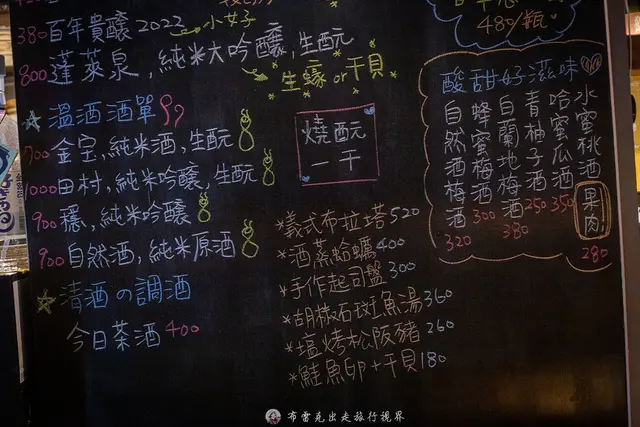 480/瓶
380 百年貴釀2022 小女子
800 蓬萊泉，純米大吟釀，生酛
生蠔or干貝
溫酒酒單
700 金宝，純米酒，生酛
1000 田村，純米吟釀，生酛
900 穩，純米吟釀
900 自然酒，純米原酒
清酒の調酒
今日茶酒 400
燒酛
一干
*義式布拉塔 520
*酒蒸蛤蠣 400
*手作起司盤 300
*胡椒石斑魚湯 360
*塩烤松阪豬 260
*鮭魚卵+干貝 180
酸甜好滋味
水蜜桃酒 果肉 280
哈蜜瓜酒 350
青柚子酒 250
白蘭地梅酒 380
蜂蜜梅酒 300
自然酒梅酒 320
布雷克出走旅行視界